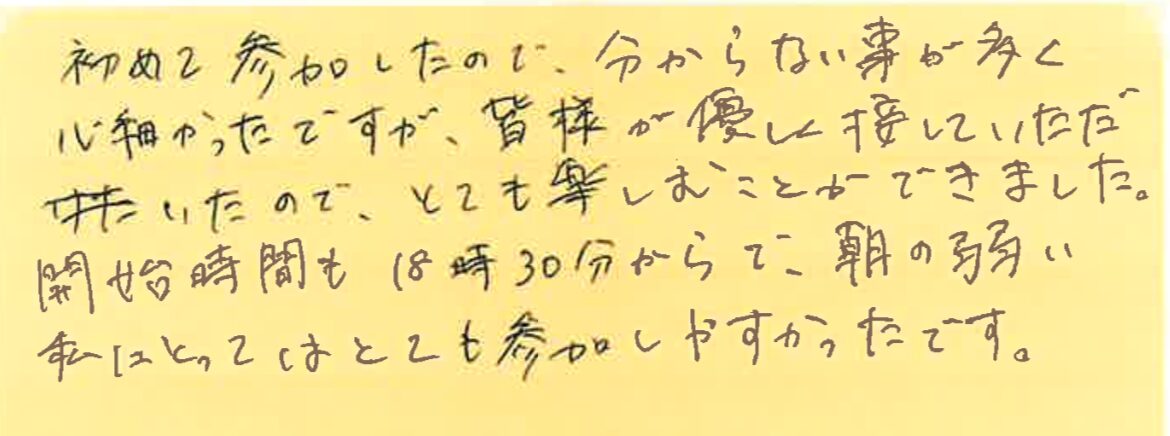 初めて参加したので、分からない事が多く
心細かったですが、皆様が優しく接していただ
いたので、とても楽しむことができました。
開始時間も18時30分からで、朝の弱い
私にとってはとても参加しやすかったです。